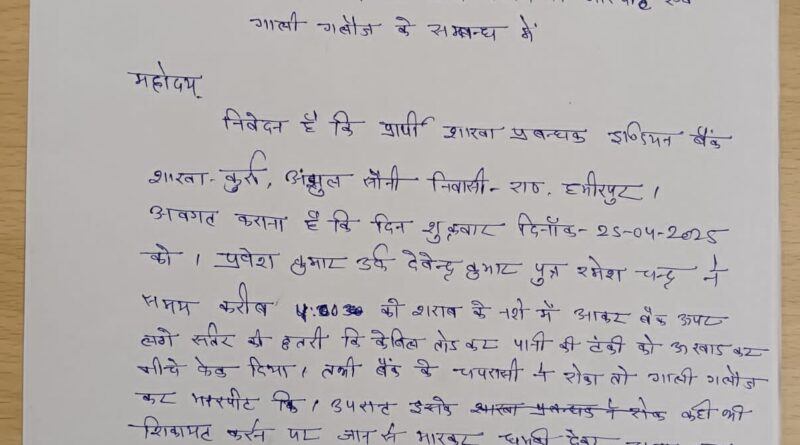 गाली गलौज के सम्बन्ध में
महोदय,
निवेदन है कि प्रार्थी शाखा प्रबन्धक इण्डियन बैंक
शाखा- कुर्रा, अंशुल सोनी निवासी- राठ, हमीरपुर ।
अवगत कराना है कि दिन शुक्रवार दिनाँक- 25-04-2025
को । प्रवेश कुमार उर्फ देवेन्द्र कुमार पुत्र रमेश चन्द्र ने
समय करीब को शराब के नशे में आकर बैंक ऊपर
लगे की छतरी कि केबिल तोड कर पानी की टंकी को उखाड कर
नीचे फेक दिया । तभी बैंक के चपरासी ने रोका तो गाली गलौज
कर मारपीट कि । उपरान्त इसके शाखा प्रबन्धक ने रोक कही भी
शिकायत करने पर जान से मारकर धमकी